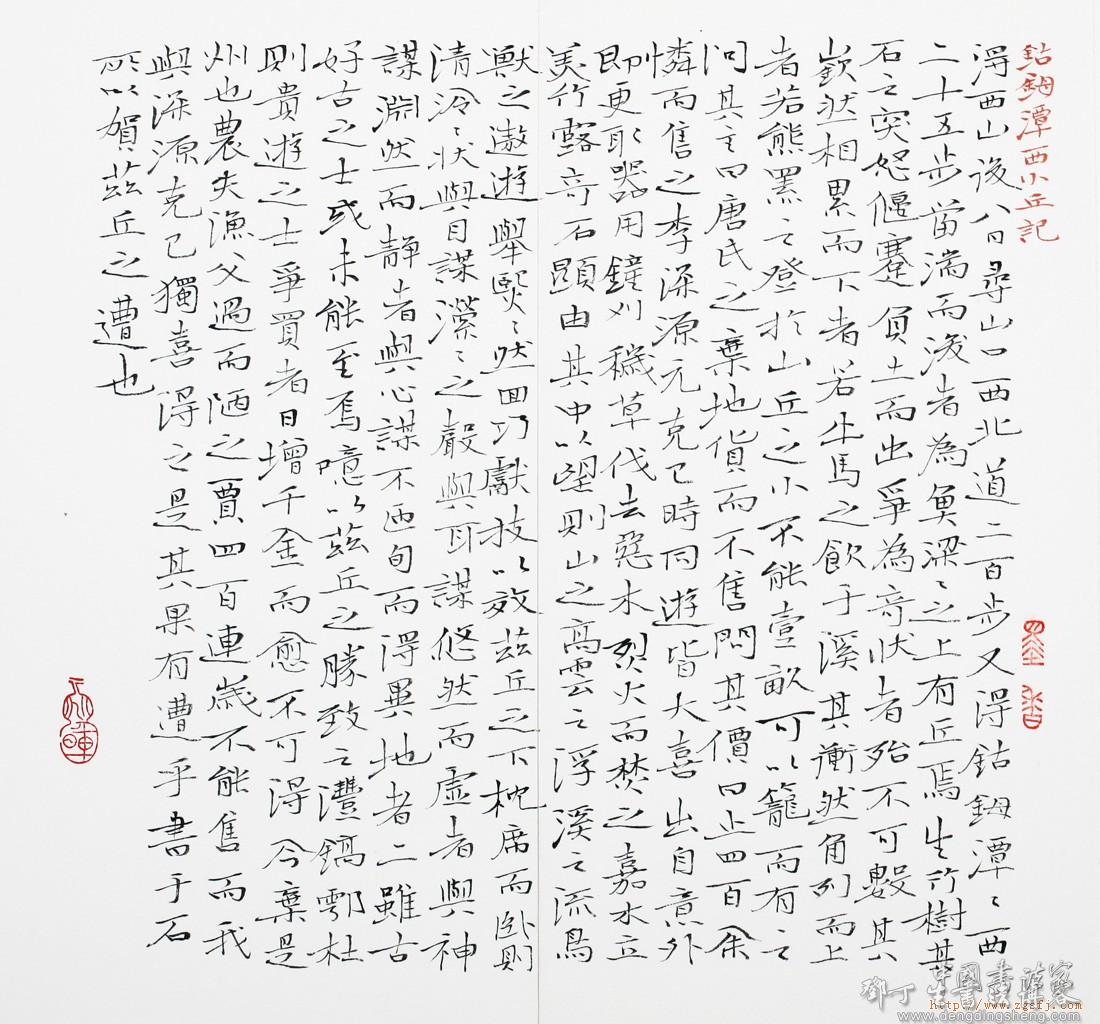 鈷鉧潭西小丘記
得西山後八日尋山口西北道二百步又得鈷鉧潭〻西
二十五步當湍而浚者為魚梁〻之上有丘焉生竹樹其
石之突怒偃蹇負土而出爭為奇狀者殆不可數其
嶔然相累而下者若牛馬之飲于溪其衝然角列而上
者若熊羆之登於山丘之小不能壹畝可以籠而有之
問其主曰唐氏之棄地貨而不售問其價曰止四百余
憐而售之李深源元克己時同遊皆大喜出自意外
即更取器用鐘刈穢草伐去惡木烈火而焚之嘉木立
美竹露奇石顯由其中以望則山之高雲之浮溪之流鳥
獸之遨遊舉熙〻然回巧獻技以效茲丘之下枕席而臥則
清泠〻狀與目謀瀯〻之聲與耳謀悠然而虛者與神
謀淵然而靜者與心謀不匝旬而得異地者二雖古
好古之士或未能至焉噫以茲丘之勝致之灃鎬鄠杜
則貴遊之士爭買者日增千金而愈不可得今棄是
州也農夫漁父過而陋之賈四百連歲不能售而我
與深源克己獨喜得之是其果有遭乎書于石
所以賀茲丘之遭也
http://www.zgsfj.com
www.dengdingsheng.com